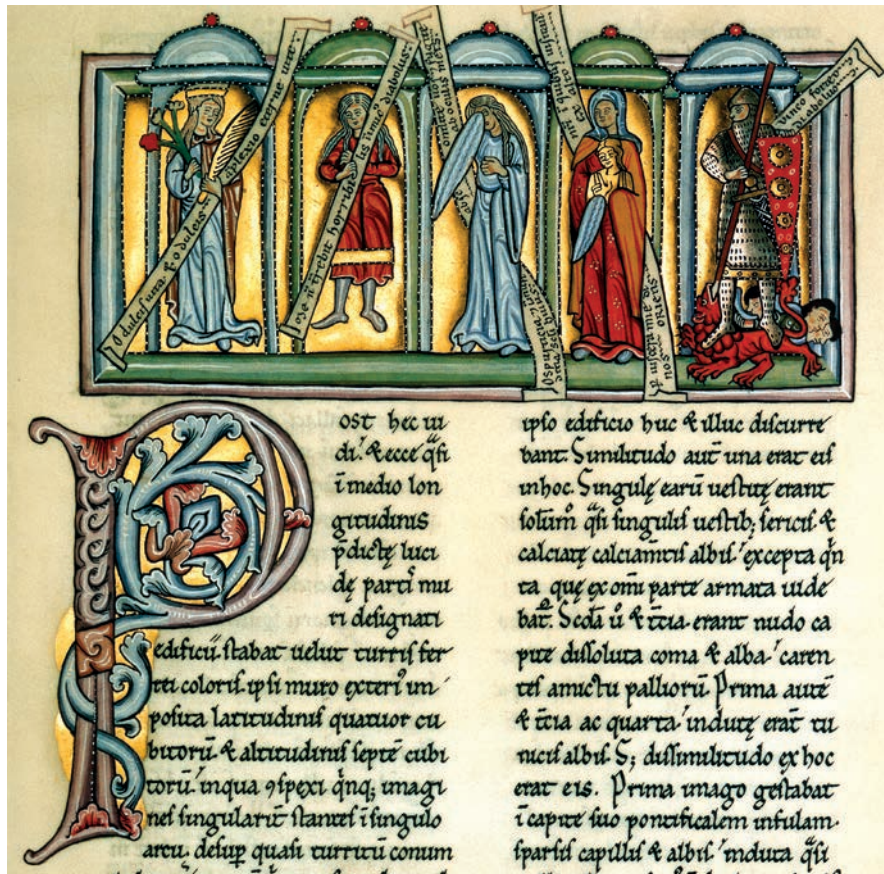 O dulcis uita & o dulcis
aplexio eterne uite
ost hec ui
di. & ecce q̄si
ī medio lon
gitudinis
p̄dictę luci
dę partı̄ mu
ri designati
edificii. stabat uelut turris fer
rei coloris. ipsi muro exteriꝰ im
posita latitudinis quatuor cu
bitorū. & altitudinis septē cubi
torū. in qua ꝯspexi q̇nq; imagi
nes singularit̄ stantes ī singulo
arcu. desup̄ quasi turritū conum
ipso edificio huc & illuc discurre
bant. Similitudo aut̄ una erat eis
in hoc. Singulę earū uestitę erant
solum̄ q̄si singulis uestib; sericis &
calciatę calciam̄tis albis. excepta q̄n
ta quę ex omı̄ parte armata uide
bat̄. Scda u̇ & t̄cia. erant nudo ca
pite dissoluta coma & alba. caren
tes amictu palliorū. Prima autē
& t̄cia ac quarta. indutę erāt tu
nicis albis. S; dissimilitudo ex hoc
erat eis. Prima imago gestabat
ī capite suo pontificalem infulam.
sparsis capillis & albis. induta q̄si